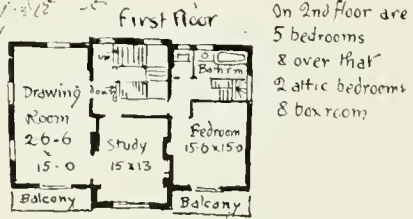 First Floor
On 2nd floor are
5 bedrooms
& over that
2 attic bedrooms
& box room
up
Bathrm
Drawing
Room
26-6
x
15-0
Study
15 x 13
Bedroom
15-0 x 15-0
Balcony
Balcony